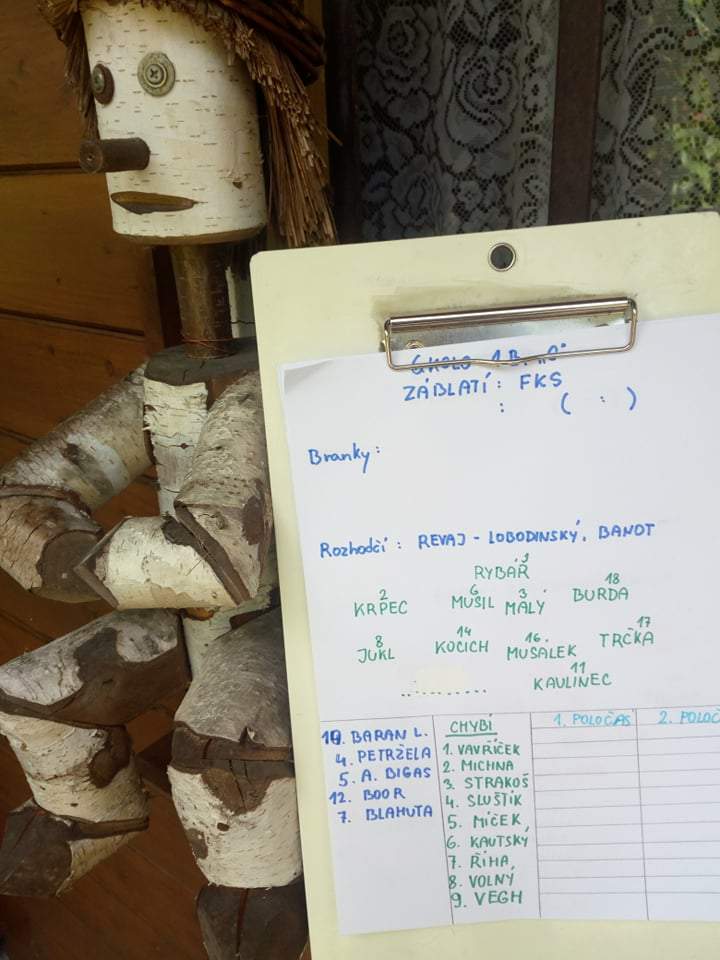 ZÁBLATÍ : FKS
: ( : )
Branky :
Rozhodčí : REVAJ - LOBODINSKÝ, BANDT
1
RYBÁŘ
2 6 3 18
KRPEC MUSIL MALÝ BURDA
8 14 16 17
JUKL KOCICH MUSÁLEK TRČKA
11
............ KAULINEC
CHYBÍ 1. POLOČAS 2. POLOČ
BARAN L.
4. PETRŽELA
5. A. BIGAS
12. BOOR
7. BLAHUTA
1. VAVŘÍČEK
2. MICHNA
3. STRAKOŠ
4. SLUŠTÍK
5. MÍČEK
6. KAUTSKÝ
7. ŘÍHA
8. VOLNÝ
9. VEGH